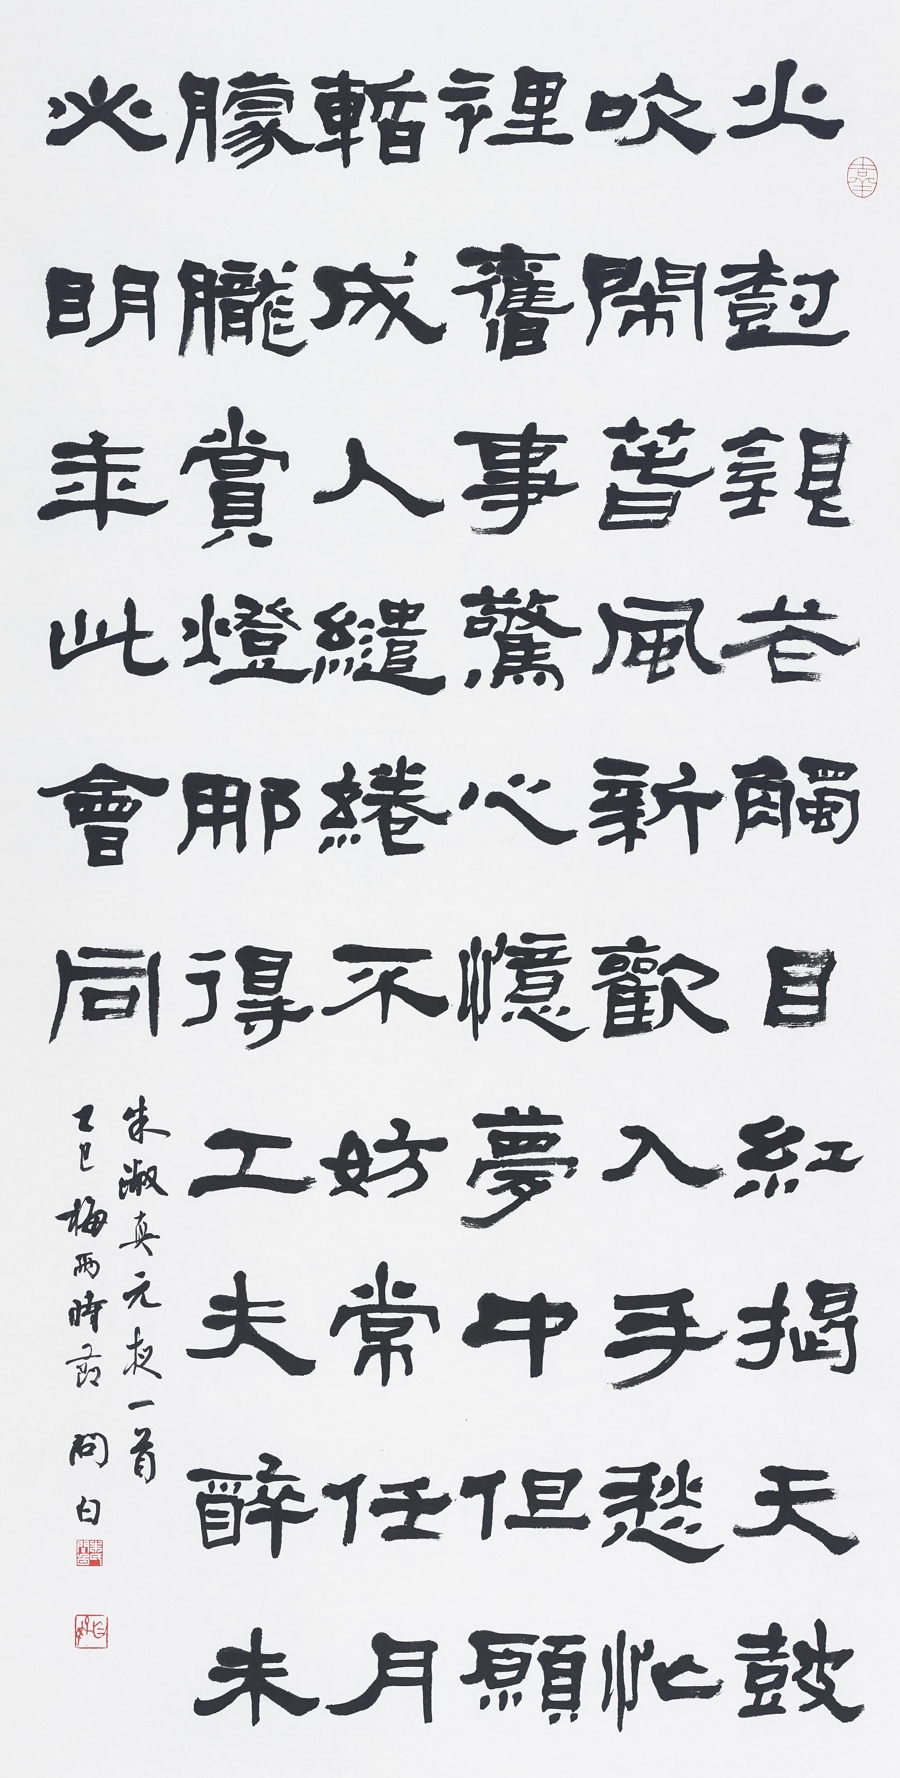 火尌銀花觸目紅揭天皷
吹閙萅風新歡入手愁忙
裡舊事驚心憶夢中但願
暫成人繾綣不妨常任月
朦朧賞燈那得工夫醉未
必明年此會同
朱淑真元夜一首
乙巳梅雨時節 問白